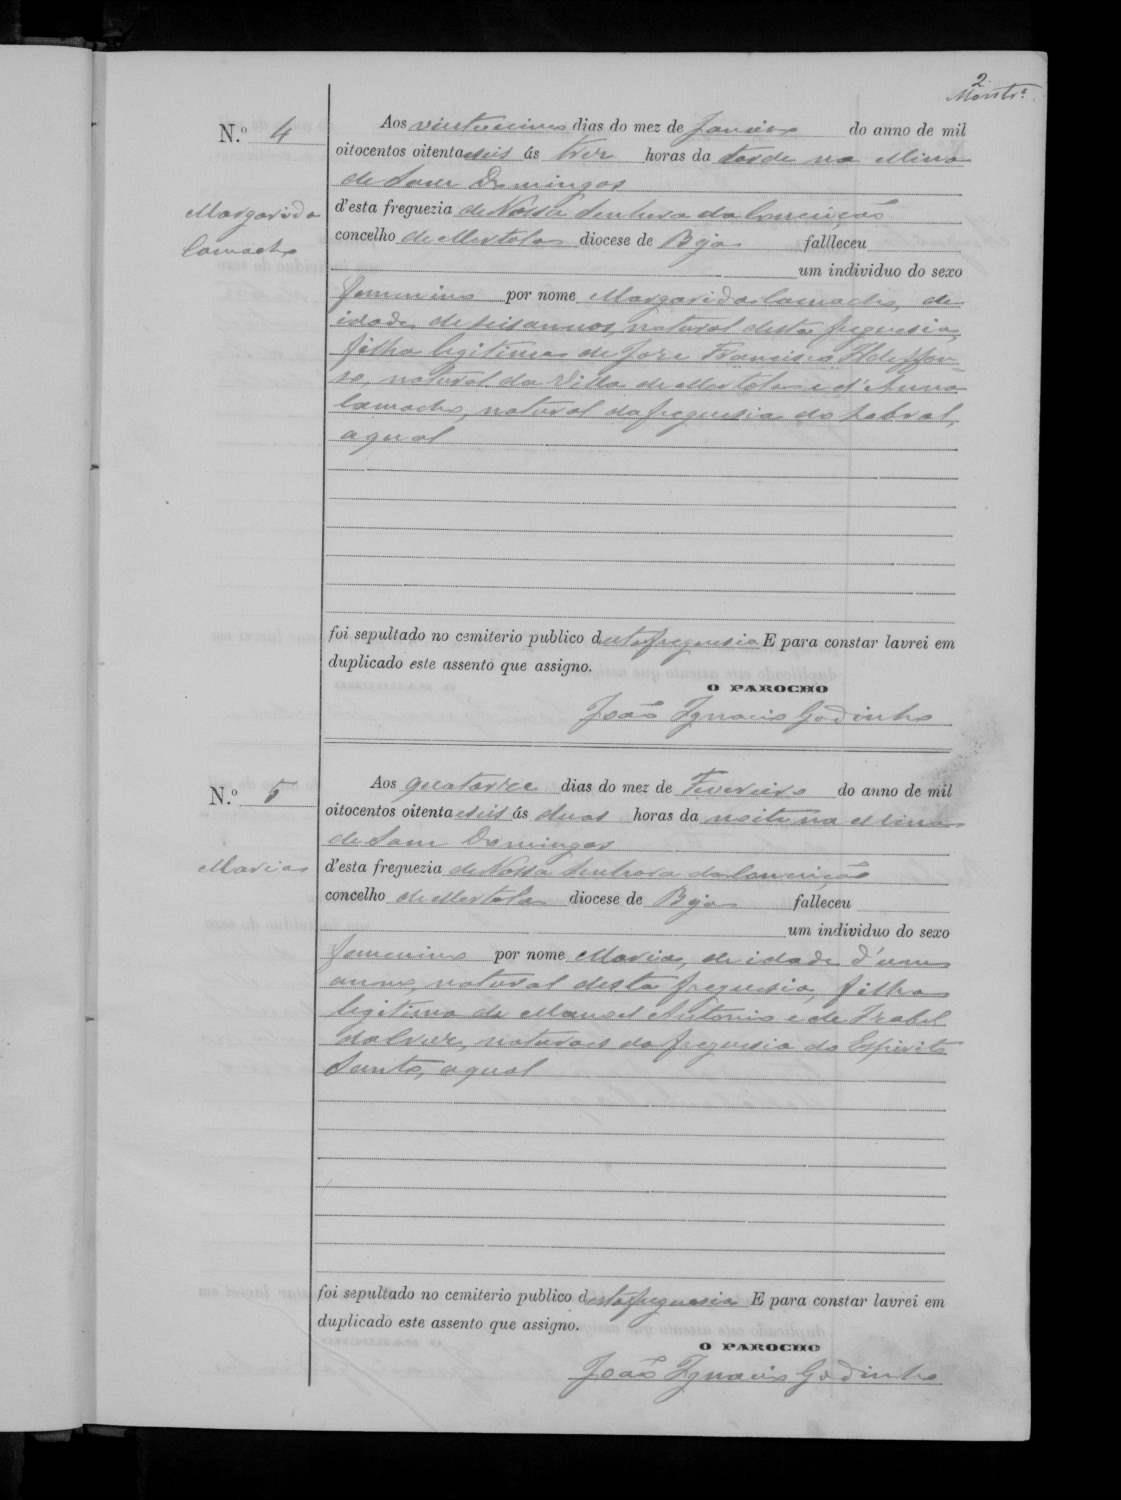 2
N.º 4
Margarida
Camacho
Aos vinte e cinco dias do mez de Janeiro do anno de mil
oitocentos oitenta e seis ás trez horas da tarde na Mina
de Sam Domingos
d'esta freguezia de Nossa Senhora da Conceição
concelho de Mertola diocese de Beja fallleceu
um individuo do sexo
femenino por nome Margarida Camacho, de
idade de seis annos, natural desta freguesia,
filha legitima de Joze Francisco Ildeffon-
so, natural da Villa de Mertola e d'Anna
Camacho, natural da freguesia do Sobral,
a qual
foi sepultado no cemiterio publico desta freguesia E para constar lavrei em
duplicado este assento que assigno.
O PAROCHO
João Ignacio Godinho
N.º 5
Maria
Aos quatorze dias do mez de Fevereiro do anno de mil
oitocentos oitenta e seis ás duas horas da noite na Mina
de Sam Domingos
d'esta freguezia de Nossa Senhora da Conceição
concelho de Mertola diocese de Beja falleceu
um individuo do sexo
femenino por nome Maria, de idade d'um
anno, natural desta freguesia, filha
legitima de Manoel Antonio e de Izabel
naturaes da freguesia do Espirito
Santo, a qual
foi sepultado no cemiterio publico desta freguesia E para constar lavrei em
duplicado este assento que assigno.
O PAROCHO
João Ignacio Godinho